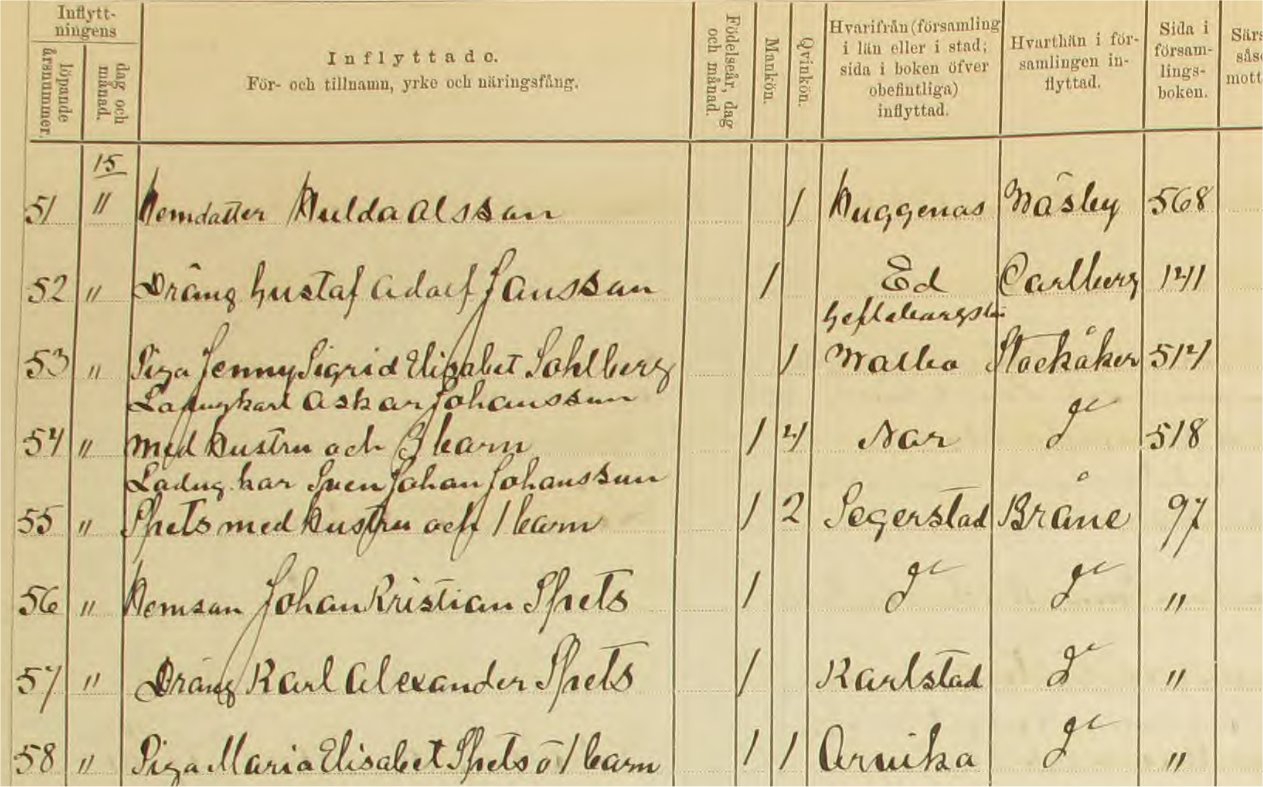 Inflytt-
ningens
löpande
årsnummer.
dag och
månad.
Inflyttade.
För- och tillnamn, yrke och näringsfång.
Födelseår, dag
och månad.
Mankön.
Qvinkön.
Hvarifrån (församling
i län eller i stad;
sida i boken öfver
obefintliga)
inflyttad.
Hvarthän i för-
samlingen in-
flyttad.
Sida i
försam-
lings-
boken.
15
51 " Hemdatter Hulda Olsson 1 Huggenäs Näsby 568
52 " Dräng Gustaf Adolf Jansson 1 Ed Carlberg 141
Gefleborgs län
53 " Piga Jenny Sigrid Elisabet Sohlberg 1 Walbo Stockåker 514
Ladugkarl Oskar Johansson
54 " med hustru och 3 barn 1 4 Nor d:o 518
Ladug.kar Sven Johan Johansson
55 " Spets med hustru och 1 barn 1 2 Segerstad Bråne 97
56 " Hemson Johan Kristian Spets 1 d:o d:o "
57 " Dräng Karl Alexander Spets 1 Karlstad d:o "
58 " Piga Maria Elisabet Spets o 1 barn 1 1 Arvika d:o "